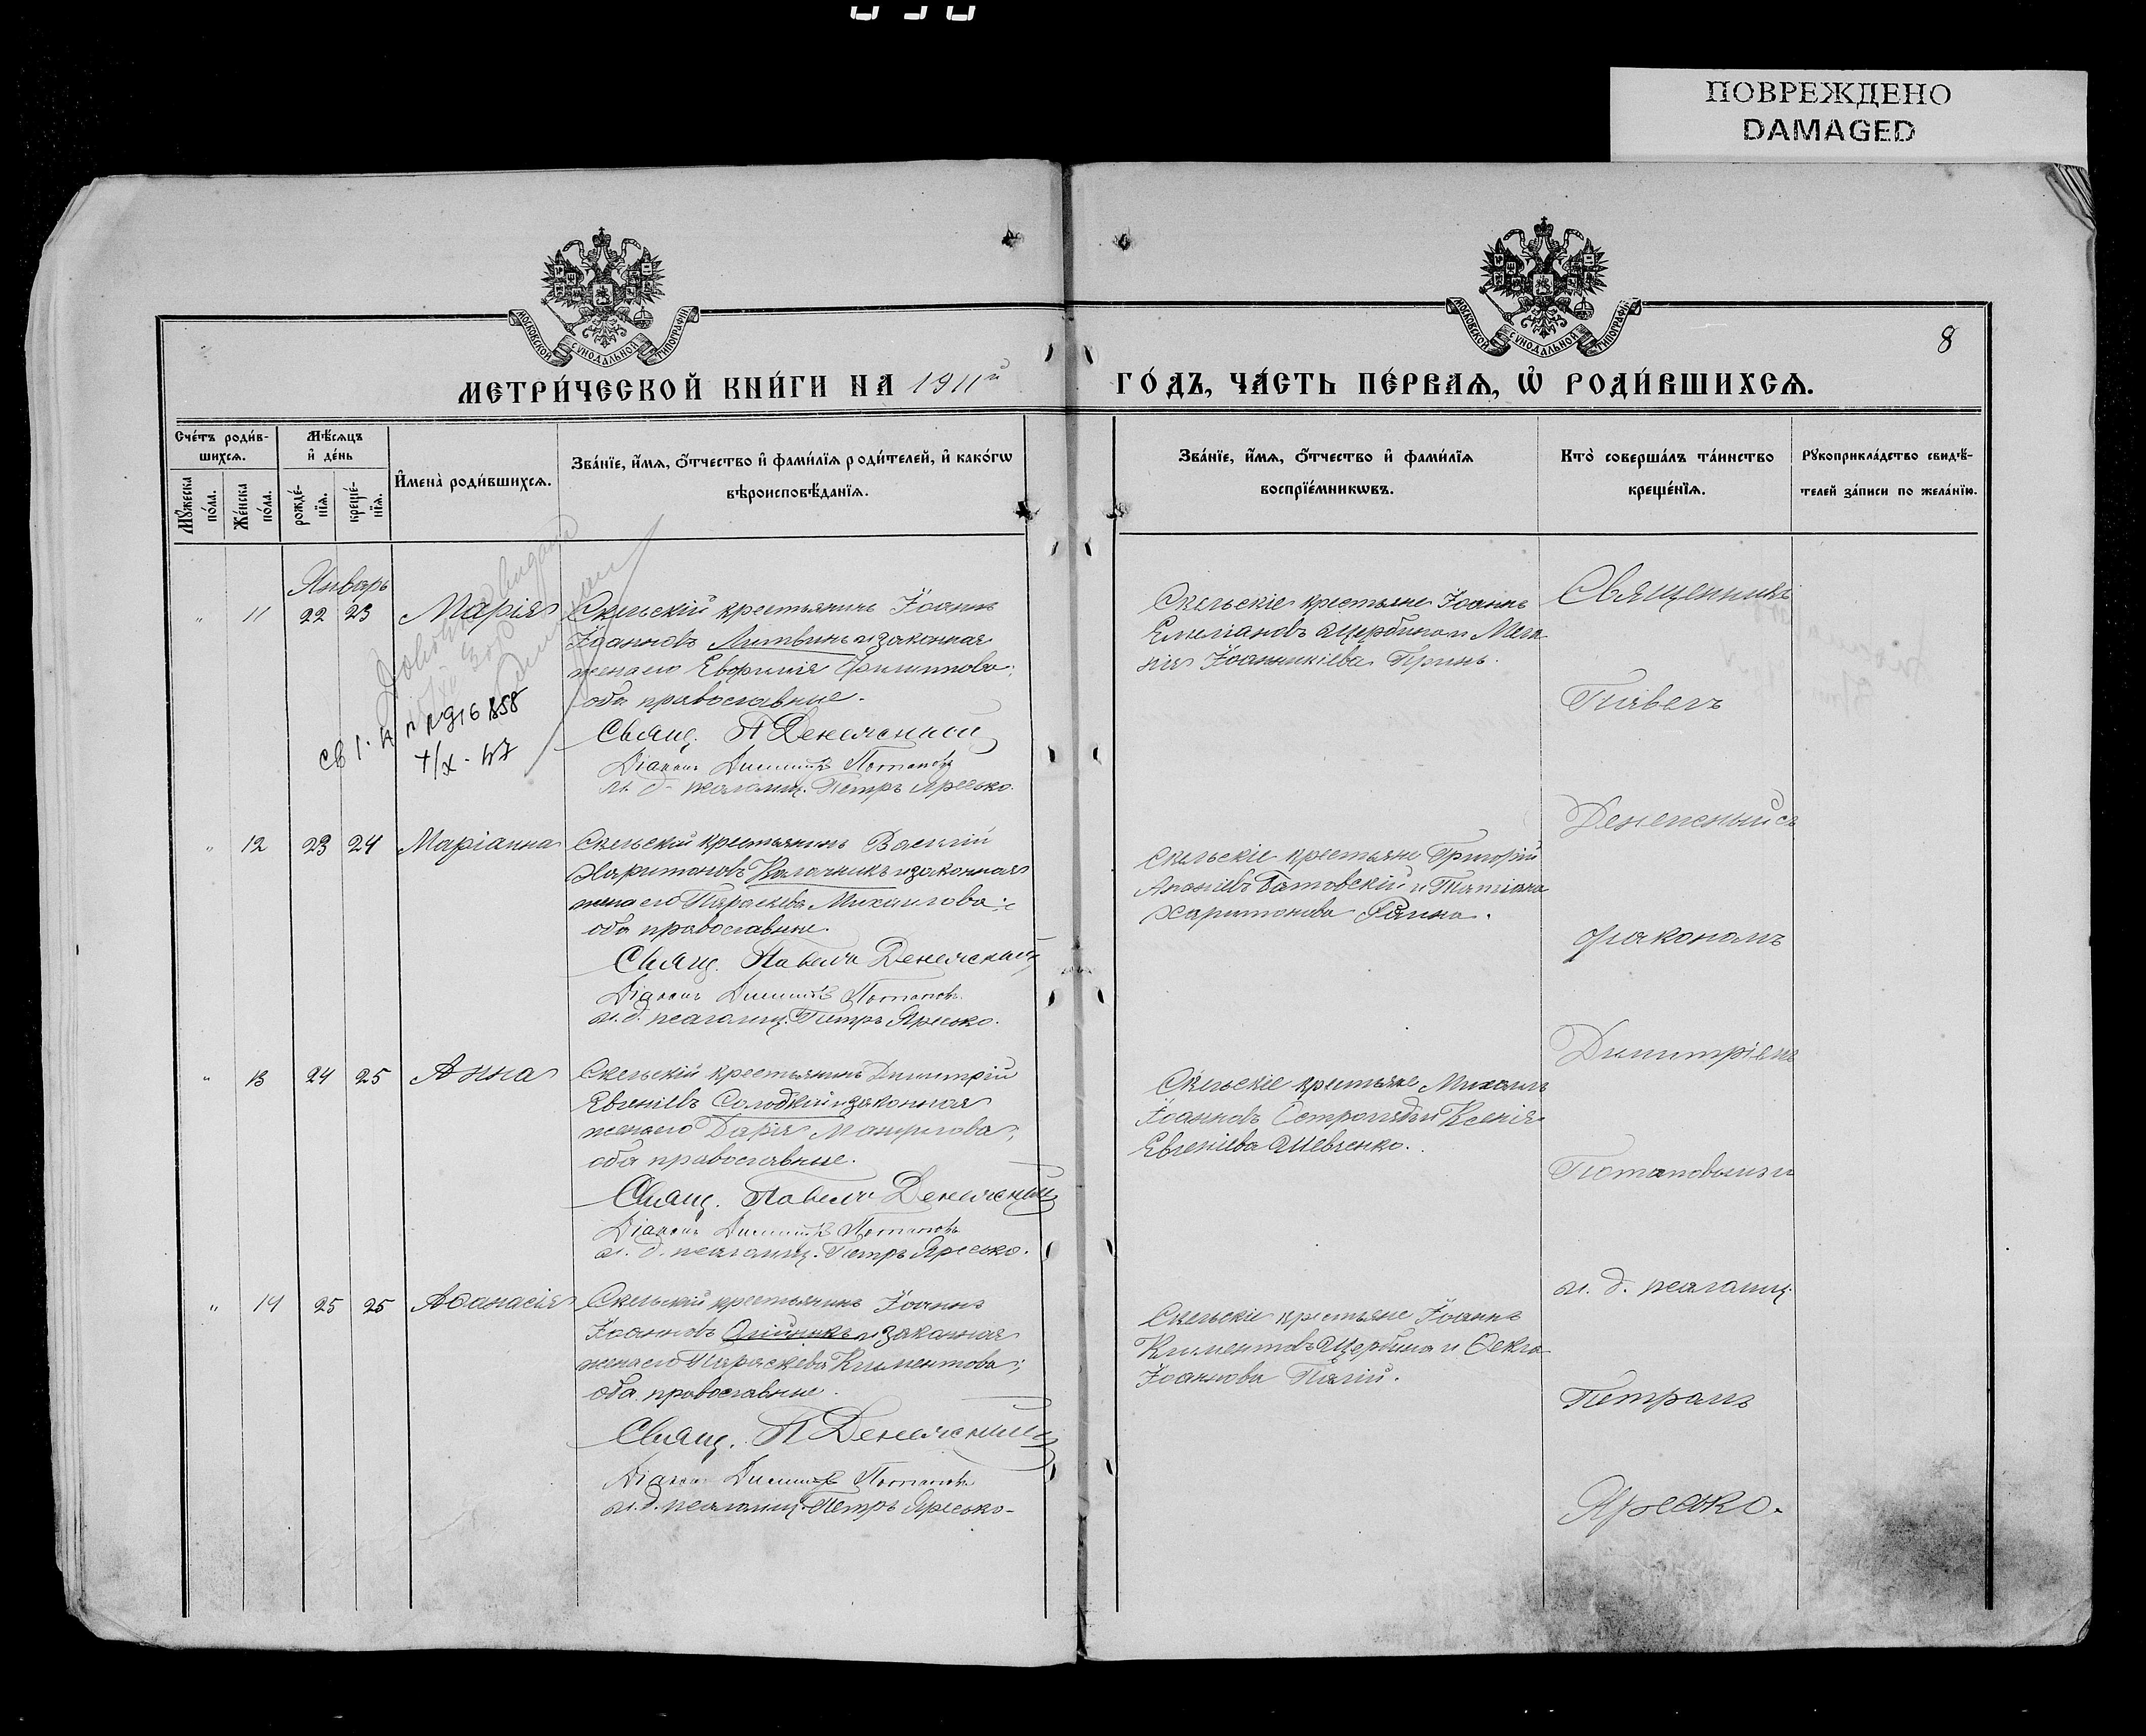 ПОВРЕЖДЕНО
DAMAGED
МОСКОВСКОЙ СѴНОДАЛЬНОЙ ТИПОГРАФІИ
МОСКОВСКОЙ СѴНОДАЛЬНОЙ ТИПОГРАФІИ
8
МЕТРИ́ЧЕСКОЙ КНИ́ГИ НА 1911й
ГО́ДЪ, ЧА́СТЬ ПЕ́РВАѦ, Ѡ҆ РОДИ́ВШИХСѦ.
Сче́тъ роди́в-
шихсѧ.
Мꙋ́жеска по́ла.
Же́нска по́ла.
Мѣ́сѧцъ
и҆ де́нь
рожде́-
нїѧ.
креще́-
нїѧ.
И҆мена̀ роди́вшихсѧ.
Зва́нїе, и҆́мѧ, ѻ҆́тчество и҆ фами́лїѧ роди́телей, и҆ како́гѡ
вѣроисповѣ́данїѧ.
Зва́нїе, и҆́мѧ, ѻ҆́тчество и҆ фами́лїѧ
воспрїе́мникѡвъ.
Кто̀ соверша́лъ та́инство
креще́нїѧ.
Рꙋкоприкла́дство свидѣ́-
телей за́писи по жела́нїю.
Январь
" 11 22 23 Марія
Скельскій крестьянинъ Іоаннъ
Іоанновъ Литвинъ и законная
жена его Евфимія Филиппова;
оба православные.
Свящ. П Денежскій
Діаконъ Димитрій Потаповъ
и. д. псаломщ. Петръ Яресько.
Скельскіе крестьяне Іоаннъ
Емеліановъ Щербина и Мела-
нія Іоанникіева Гринь.
" 12 23 24 Маріанна
Скельскій крестьянинъ Василій
Харитоновъ Калачникъ и законная
жена его Параскева Михаилова;
оба православные.
Свящ. Павелъ Денежскій
Діаконъ Димитрій Потаповъ
и. д. псаломщ. Петръ Яресько.
Скельскіе крестьяне Григорій
Ананіевъ Батовскій и Татіана
Харитонова
" 13 24 25 Анна
Скельскій крестьянинъ Димитрій
Евгеніевъ Солодкій и законная
жена его Дарія
оба православные.
Свящ. Павелъ Денежскій
Діаконъ Димитрій Потаповъ
и. д. псаломщ. Петръ Яресько.
Скельскіе крестьяне Михаилъ
Іоанновъ и Ксенія
Евгеніева Шевченко.
" 14 25 25 Аѳанасія
Скельскій крестьянинъ Іоаннъ
Іоанновъ Олійникъ и законная
жена его Параскева Климентова;
оба православные.
Свящ. П Денежскій
Діаконъ Димитрій Потаповъ
и. д. псаломщ. Петръ Яресько
Скельскіе крестьяне Іоаннъ
Климентовъ Щербина и Ѳекла
Іоаннова Палій.
Священникъ
Павелъ
Денежскій съ
діакономъ
Димитріемъ
Потаповымъ и
и. д. псаломщ.
Петромъ
Яресько.